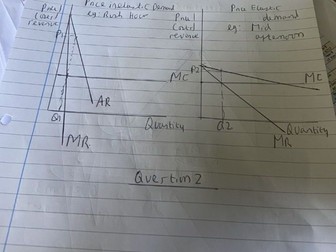 Price
(cost)
revenue
Price inelastic Demand
eg: Rush hour
P1
Q1
AR
MR
Quantity
Price
(cost)
revenue
Price Elastic
demand
eg: Mid
afternoon
P2
MC
MC
Q2
Quantity
MR
Question 2